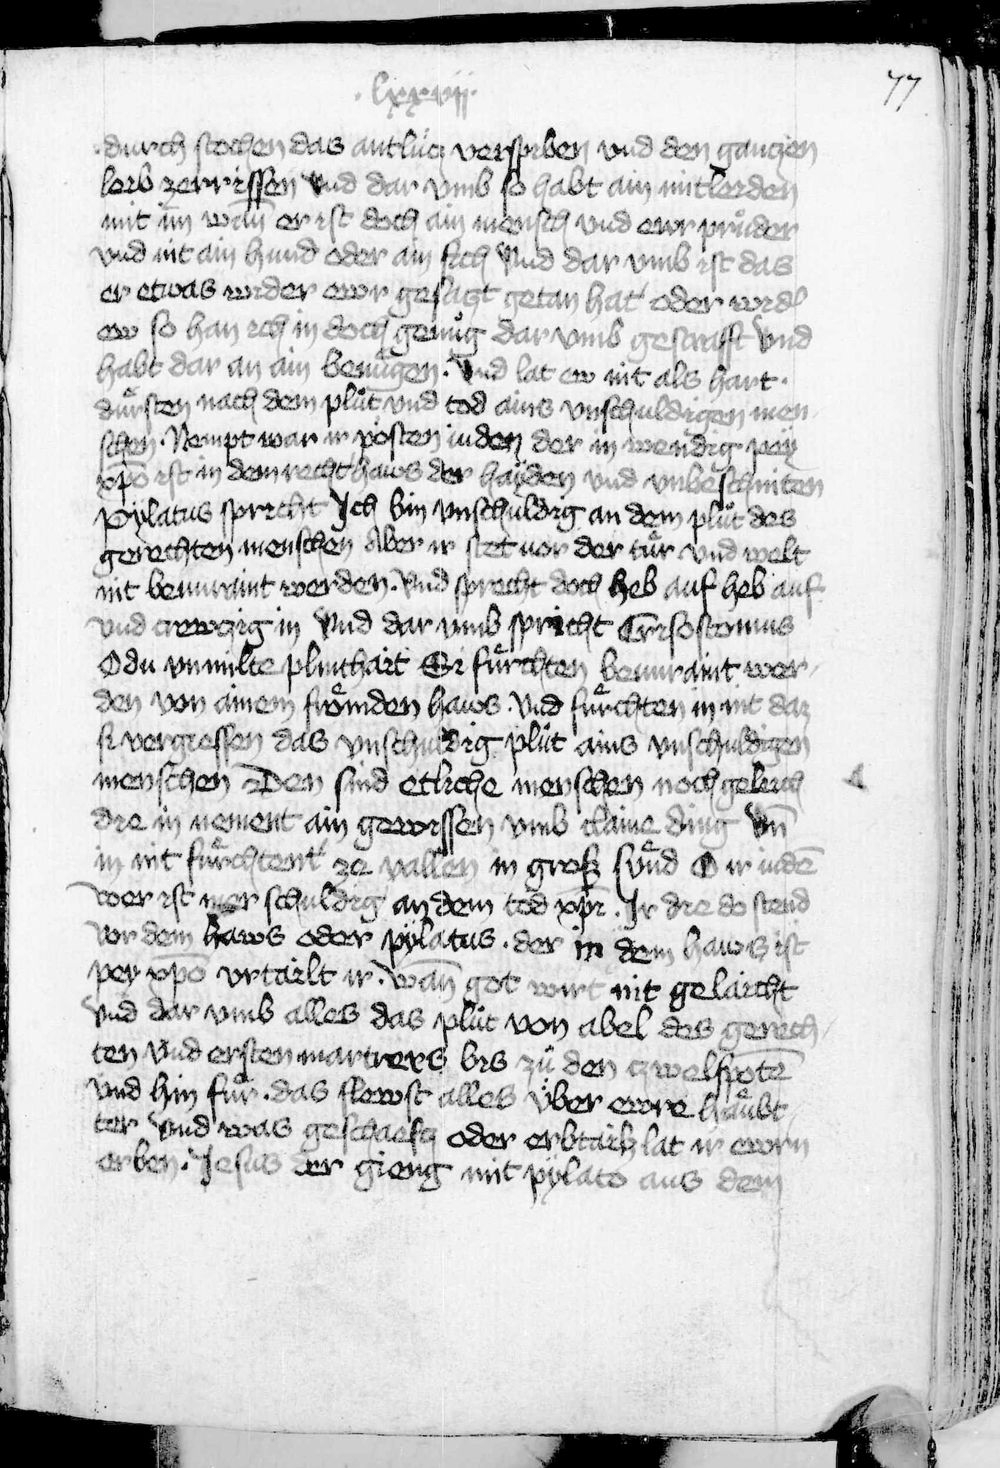 .lxxvij.
77
durch stochen das antlücz verspiben vnd den ganczen
leib zerrissen Vnd dar vmb so habt ain mitleiden
mit im wan̄ er ist doch ain mensch vnd ewr prüder
vnd nit ain hund oder ain fich Vnd dar vmb ist das
er etwas wider ewr gesaczt getan hat oder wid
ew so han ich in doch genug dar vmb gestrafft Vnd
habt dar an ain benügen. Vnd lat ew nit als hart.
dürsten nach dem plüt vnd tod ains vnschuldigen men
schen. Nempt war ir pösten iuden der in wendig pey
xp̄o ist in dem recht haws der hayden vnd vnbeschniten
Pylatus spricht Ich bin vnschuldig an dem plüt des
gerechten menschen Aber ir stet vor der tür vnd welt
nit bemuraint werden. Vnd sprecht doch heb auf heb auf
vnd crewczig in Vnd dar vmb spricht Crisostomus
O du vnmilte plinthait Si fürchten bemuraint wer
den von ainem frömden haws. Vnd fürchten in nit daz
si vergiessen das vnschuldig plüt ains vnschuldigen
menschen Den sind etliche menschen noch geleich
die in nement ain gewissen vmb claine ding Vn̄
in nit fürchtent ze vallen in groß sünd O ir iudē
wer ist mer schuldig an dem tod xp̄i. Ir die do stend
vor dem haws oder pylatus. der in dem haws ist
pey xp̄o vrtailt ir. wan̄ got wirt nit gelaicht
Vnd dar vmb alles das plüt von abel des gerech
ten Vnd ersten martrers bis zü den czwelfpotē
Vnd hin für. das flewst alles über ewre haübt
ter Vnd was geschaefcz oder erbtails lat ir ewrn
erben. Jesus der gieng mit pylato aus dem